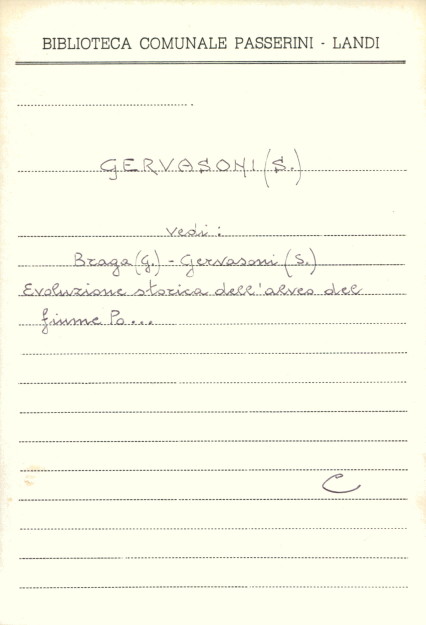 BIBLIOTECA COMUNALE PASSERINI - LANDI
GERVASONI (S.)
vedi:
Braga (G.) - Gervasoni (S.)
Evoluzione storica dell'alveo del
fiume Po...
C